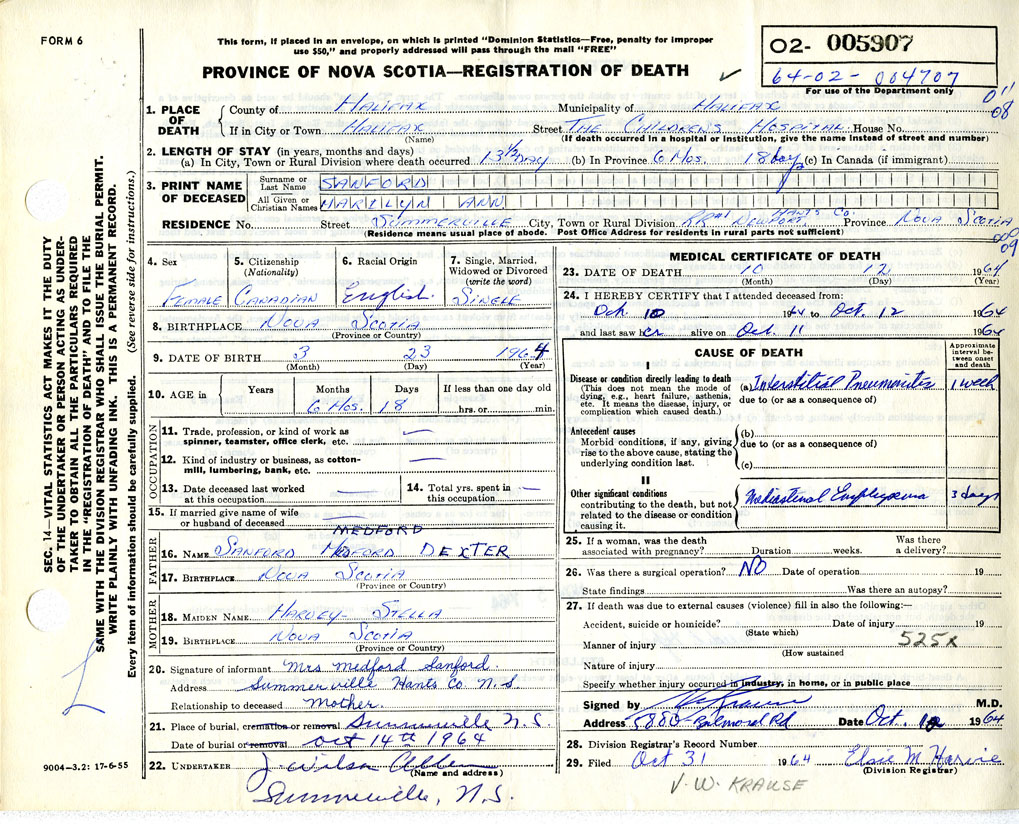 FORM 6
This form, if placed in an envelope, on which is printed "Dominion Statistics—Free, penalty for improper
use $50," and properly addressed will pass through the mail "FREE"
PROVINCE OF NOVA SCOTIA—REGISTRATION OF DEATH
O2- 005907
64-02- 004707
For use of the Department only
1. PLACE OF DEATH
County of HALIFAX Municipality of HALIFAX
08
If in City or Town HALIFAX Street THE CHILDREN'S HOSPITAL House No.
(Name) (If death occurred in a hospital or institution, give the name instead of street and number)
2. LENGTH OF STAY (in years, months and days)
(a) In City, Town or Rural Division where death occurred 1 3½ DAY (b) In Province 6 Mos. 18 days (c) In Canada (if immigrant)
3. PRINT NAME OF DECEASED
Surname or Last Name SANFORD
All Given or Christian Names MARILYN ANN
RESIDENCE No. Street SUMMERVILLE City, Town or Rural Division RR#1 NEWPORT, HANTS Co. Province NOVA SCOTIA
(Residence means usual place of abode. Post Office Address for residents in rural parts not sufficient)
009
09
4. Sex
FEMALE
5. Citizenship
(Nationality)
CANADIAN
6. Racial Origin
English
7. Single, Married,
Widowed or Divorced
(write the word)
SINGLE
8. BIRTHPLACE NOVA SCOTIA
(Province or Country)
9. DATE OF BIRTH 3 23 1964
(Month) (Day) (Year)
10. AGE in
Years Months Days If less than one day old
6 Mos. 18 hrs. or min.
OCCUPATION
11. Trade, profession, or kind of work as
spinner, teamster, office clerk, etc. —
12. Kind of industry or business, as cotton-
mill, lumbering, bank, etc. —
13. Date deceased last worked
at this occupation —
14. Total yrs. spent in
this occupation —
15. If married give name of wife
or husband of deceased —
FATHER
MEDFORD
16. NAME SANFORD MEDFORD DEXTER
17. BIRTHPLACE NOVA SCOTIA
(Province or Country)
MOTHER
18. MAIDEN NAME HARVEY- STELLA
19. BIRTHPLACE NOVA SCOTIA
(Province or Country)
20. Signature of informant Mrs Medford Sanford.
Address Summerville Hants Co. N.S
Relationship to deceased Mother.
21. Place of burial, cremation or removal Summerville N.S.
Date of burial or removal Oct 14th 1964
22. UNDERTAKER J Wilson
(Name and address)
Summerville, N.S.
MEDICAL CERTIFICATE OF DEATH
23. DATE OF DEATH 10 12 1964
(Month) (Day) (Year)
24. I HEREBY CERTIFY that I attended deceased from:
Oct. 10 1964 to Oct. 12 1964
and last saw her alive on Oct. 11 1964
CAUSE OF DEATH
Approximate
interval be-
tween onset
and death
I
Disease or condition directly leading to death
(This does not mean the mode of
dying, e.g., heart failure, asthenia,
etc. It means the disease, injury, or
complication which caused death.)
(a) Interstitial Pneumonitis 1 week
due to (or as a consequence of)
Antecedent causes
Morbid conditions, if any, giving
rise to the above cause, stating the
underlying condition last.
(b)
due to (or as a consequence of)
(c)
II
Other significant conditions
contributing to the death, but not
related to the disease or condition
causing it.
Mediastinal Emphysema 3 days
25. If a woman, was the death
associated with pregnancy? Duration weeks. Was there
a delivery?
26. Was there a surgical operation? NO Date of operation 19
State findings Was there an autopsy?
27. If death was due to external causes (violence) fill in also the following:—
Accident, suicide or homicide? Date of injury 19
(State which)
Manner of injury 525X
(How sustained
Nature of injury
Specify whether injury occurred in industry, in home, or in public place
Signed by M.D.
Address 5880 Balmoral Rd Date Oct. 12 1964
28. Division Registrar's Record Number
29. Filed Oct 31 1964 Elsie M Harvie
(Division Registrar)
V.W. KRAUSE
SEC. 14—VITAL STATISTICS ACT MAKES IT THE DUTY
OF THE UNDERTAKER OR PERSON ACTING AS UNDER-
TAKER TO OBTAIN ALL THE PARTICULARS REQUIRED
IN THE "REGISTRATION OF DEATH" AND TO FILE THE
SAME WITH THE DIVISION REGISTRAR WHO SHALL ISSUE THE BURIAL PERMIT.
WRITE PLAINLY WITH UNFADING INK. THIS IS A PERMANENT RECORD.
Every item of information should be carefully supplied. (See reverse side for instructions.)
9004-3.2: 17-6-55